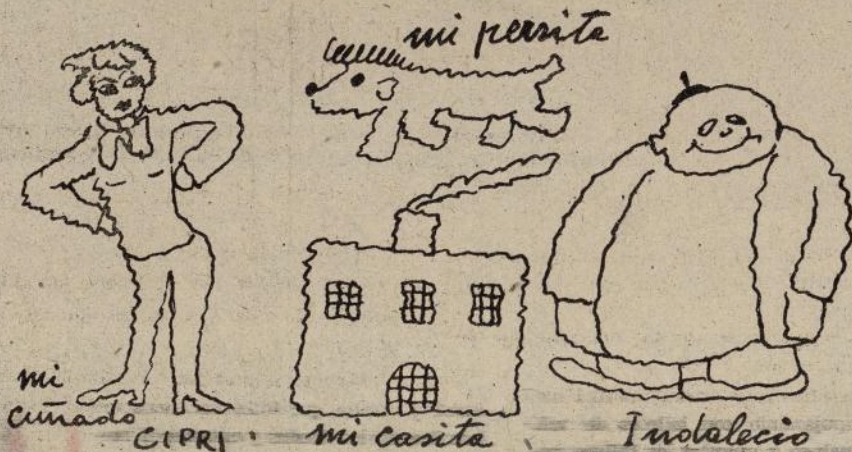 mi perrita
mi
cuñado
CIPRI
mi casita
Indalecio